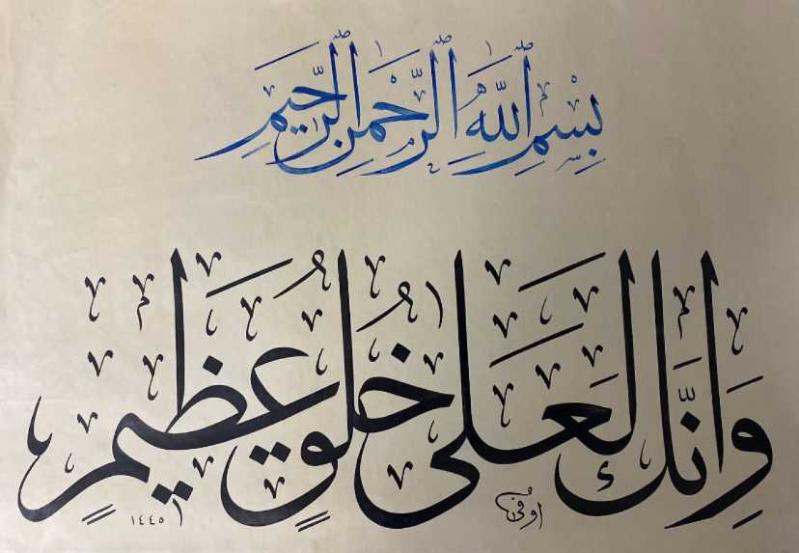 بِسْمِ اللَّهِ الرَّحْمٰنِ الرَّحِيمِ
وَإِنَّكَ لَعَلى خُلُقٍ عَظِيمٍ
١٤٤٥